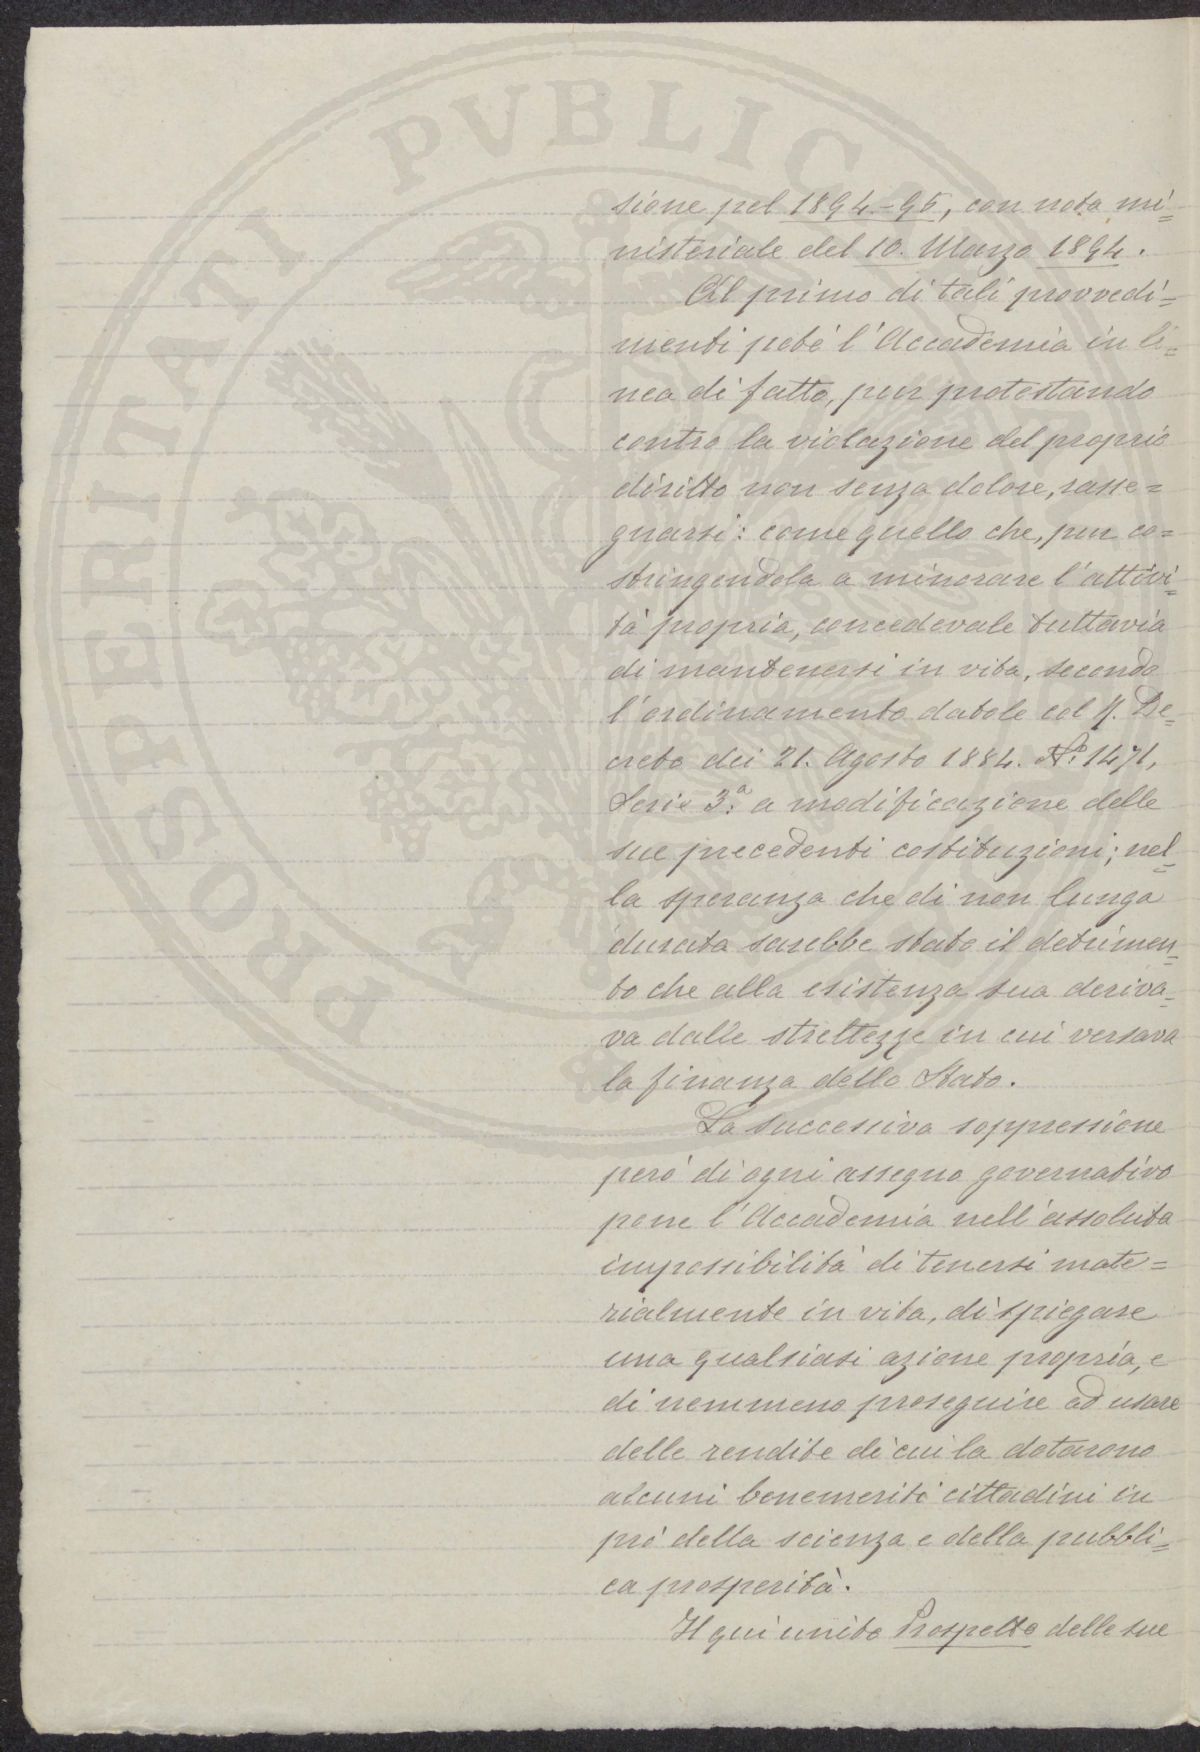 PROSPERITATI PVBLICAE
sione pel 1894-95, con nota mi=
nisteriale del 10. Marzo 1894.
Al primo di tali provvedi=
menti poté l'Accademia in li=
nea di fatto, pur protestando
contro la violazione del proprio
diritto non senza dolore, rasse=
gnarsi: come quello che, pur co=
stringendola a minorare l'attivi=
tà propria, concedevale tuttavia
di mantenersi in vita, secondo
l'ordinamento datole col R. De=
creto dei 21. Agosto 1884. N.º 1471,
Serie 3.ª a modificazione delle
sue precedenti costituzioni; nel=
la speranza che di non lunga
durata sarebbe stato il detrimen=
to che alla esistenza sua deriva=
va dalle strettezze in cui versava
la finanza dello Stato.
La successiva soppressione
però di ogni assegno governativo
pone l'Accademia nell'assoluta
impossibilità di tenersi mate=
rialmente in vita, di spiegare
una qualsiasi azione propria, e
di nemmeno proseguire ad usare
delle rendite di cui la dotarono
alcuni benemeriti cittadini in
prò della scienza e della pubbli=
ca prosperità.
Il qui unito Prospetto delle sue